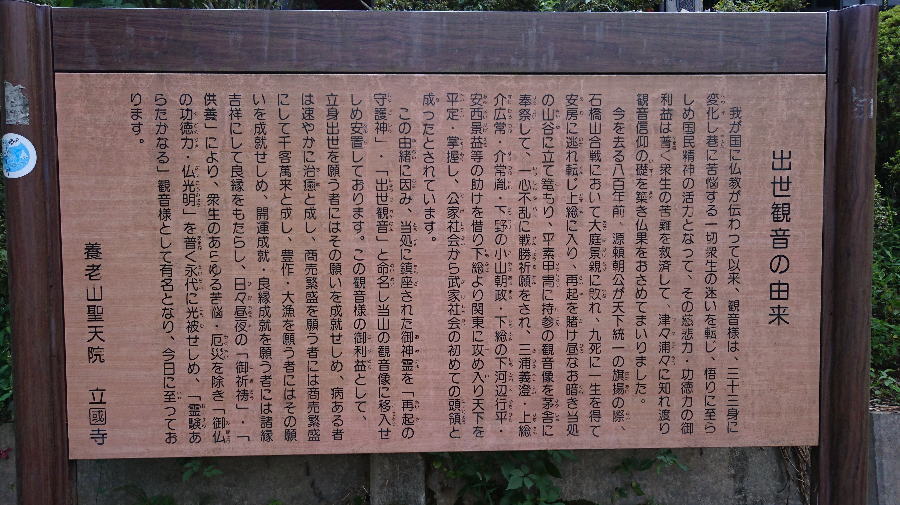 出世観音の由来
我が国に仏教が伝わって以来、観音様は、三十三身に
変化し巷に苦悩する一切衆生の迷いを転し、悟りに至ら
しめ国民精神の活力となって、その慈悲力・功徳力の御
利益は普く衆生の苦難を救済して、津々浦々に知れ渡り
観音信仰の礎を築き仏果をおさめてまいりました。
今を去る八百年前、源頼朝公が天下統一の旗揚の際、
石橋山合戦において大庭景親に敗れ、九死に一生を得て
安房に逃れ転じ上総に入り、再起を賭け昼なお暗き当処
の山谷に立て篭もり、平素甲冑に持参の観音像を茅舎に
奉祭して、一心不乱に戦勝祈願をされ、三浦義澄・上総
介広常・介常胤・下野の小山朝政・下総の下河辺行平・
安西景益等の助けを借り下総より関東に攻め入り天下を
平定・掌握し、公家社会から武家社会の初めての頭領と
成ったとされています。
この由緒に因み、当処に鎮座された御神霊を「再起の
守護神」・「出世観音」と命名し当山の観音像に移入せ
しめ安置しております。この観音様の御利益として、
立身出世を願う者にはその願いを成就せしめ、病ある者
は速やかに治癒と成し、商売繁盛を願う者には商売繁盛
にして千客萬来と成し、豊作・大漁を願う者にはその願
いを成就せしめ、開運成就・良縁成就を願う者には諸縁
吉祥にして良縁をもたらし、日々昼夜の「御祈祷」・「
供養」により、衆生のあらゆる苦悩・厄災を除き「御仏
の功徳力・仏光明」を普く永代に光被せしめ、「霊験あ
らたかなる」観音様として有名となり、今日に至ってお
ります。
養老山聖天院　立國寺